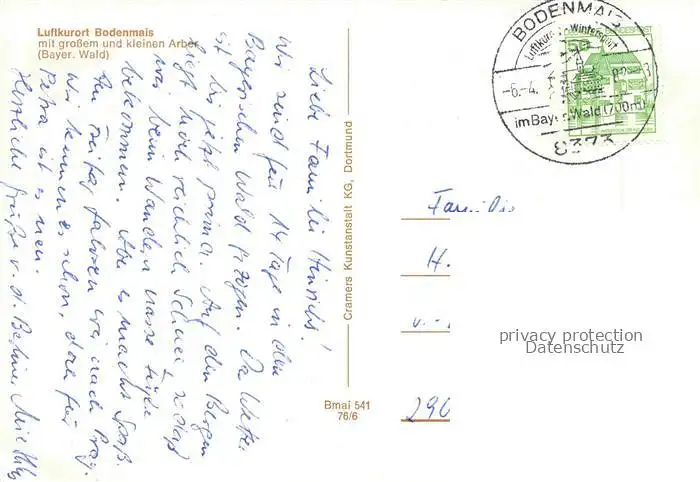 Luftkurort Bodenmais
mit großem und kleinen Arber
(Bayer. Wald)
Liebe Familie Heinrichs!
Wir sind für 14 Tage in den
Bayerischen Wald gezogen. Das Wetter
ist bis jetzt prima. Auf den Bergen
liegt noch reichlich Schnee, sodaß
wir beim Wandern nasse Füße
bekommen. Aber es macht Spaß.
Am Freitag fahren wir nach Prag.
Wir kennen es schon, doch für
Petra ist es neu.
Herzliche Grüße v. d.
Cramers Kunstanstalt KG, Dortmund
Bmai 541
76/6
BODENMAIS
Luftkurort Wintersport
-6.-4.
im Bayer. Wald (700m)
8373
Familie
H.
290
privacy protection
Datenschutz